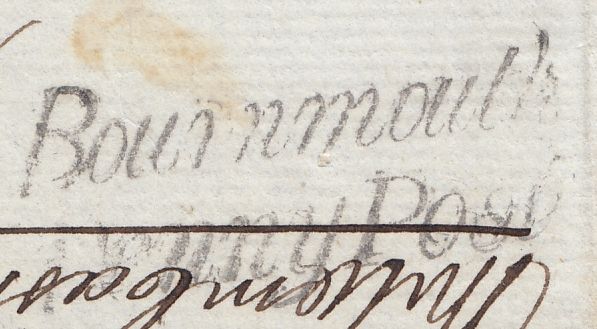 Bournmouth
Penny Post